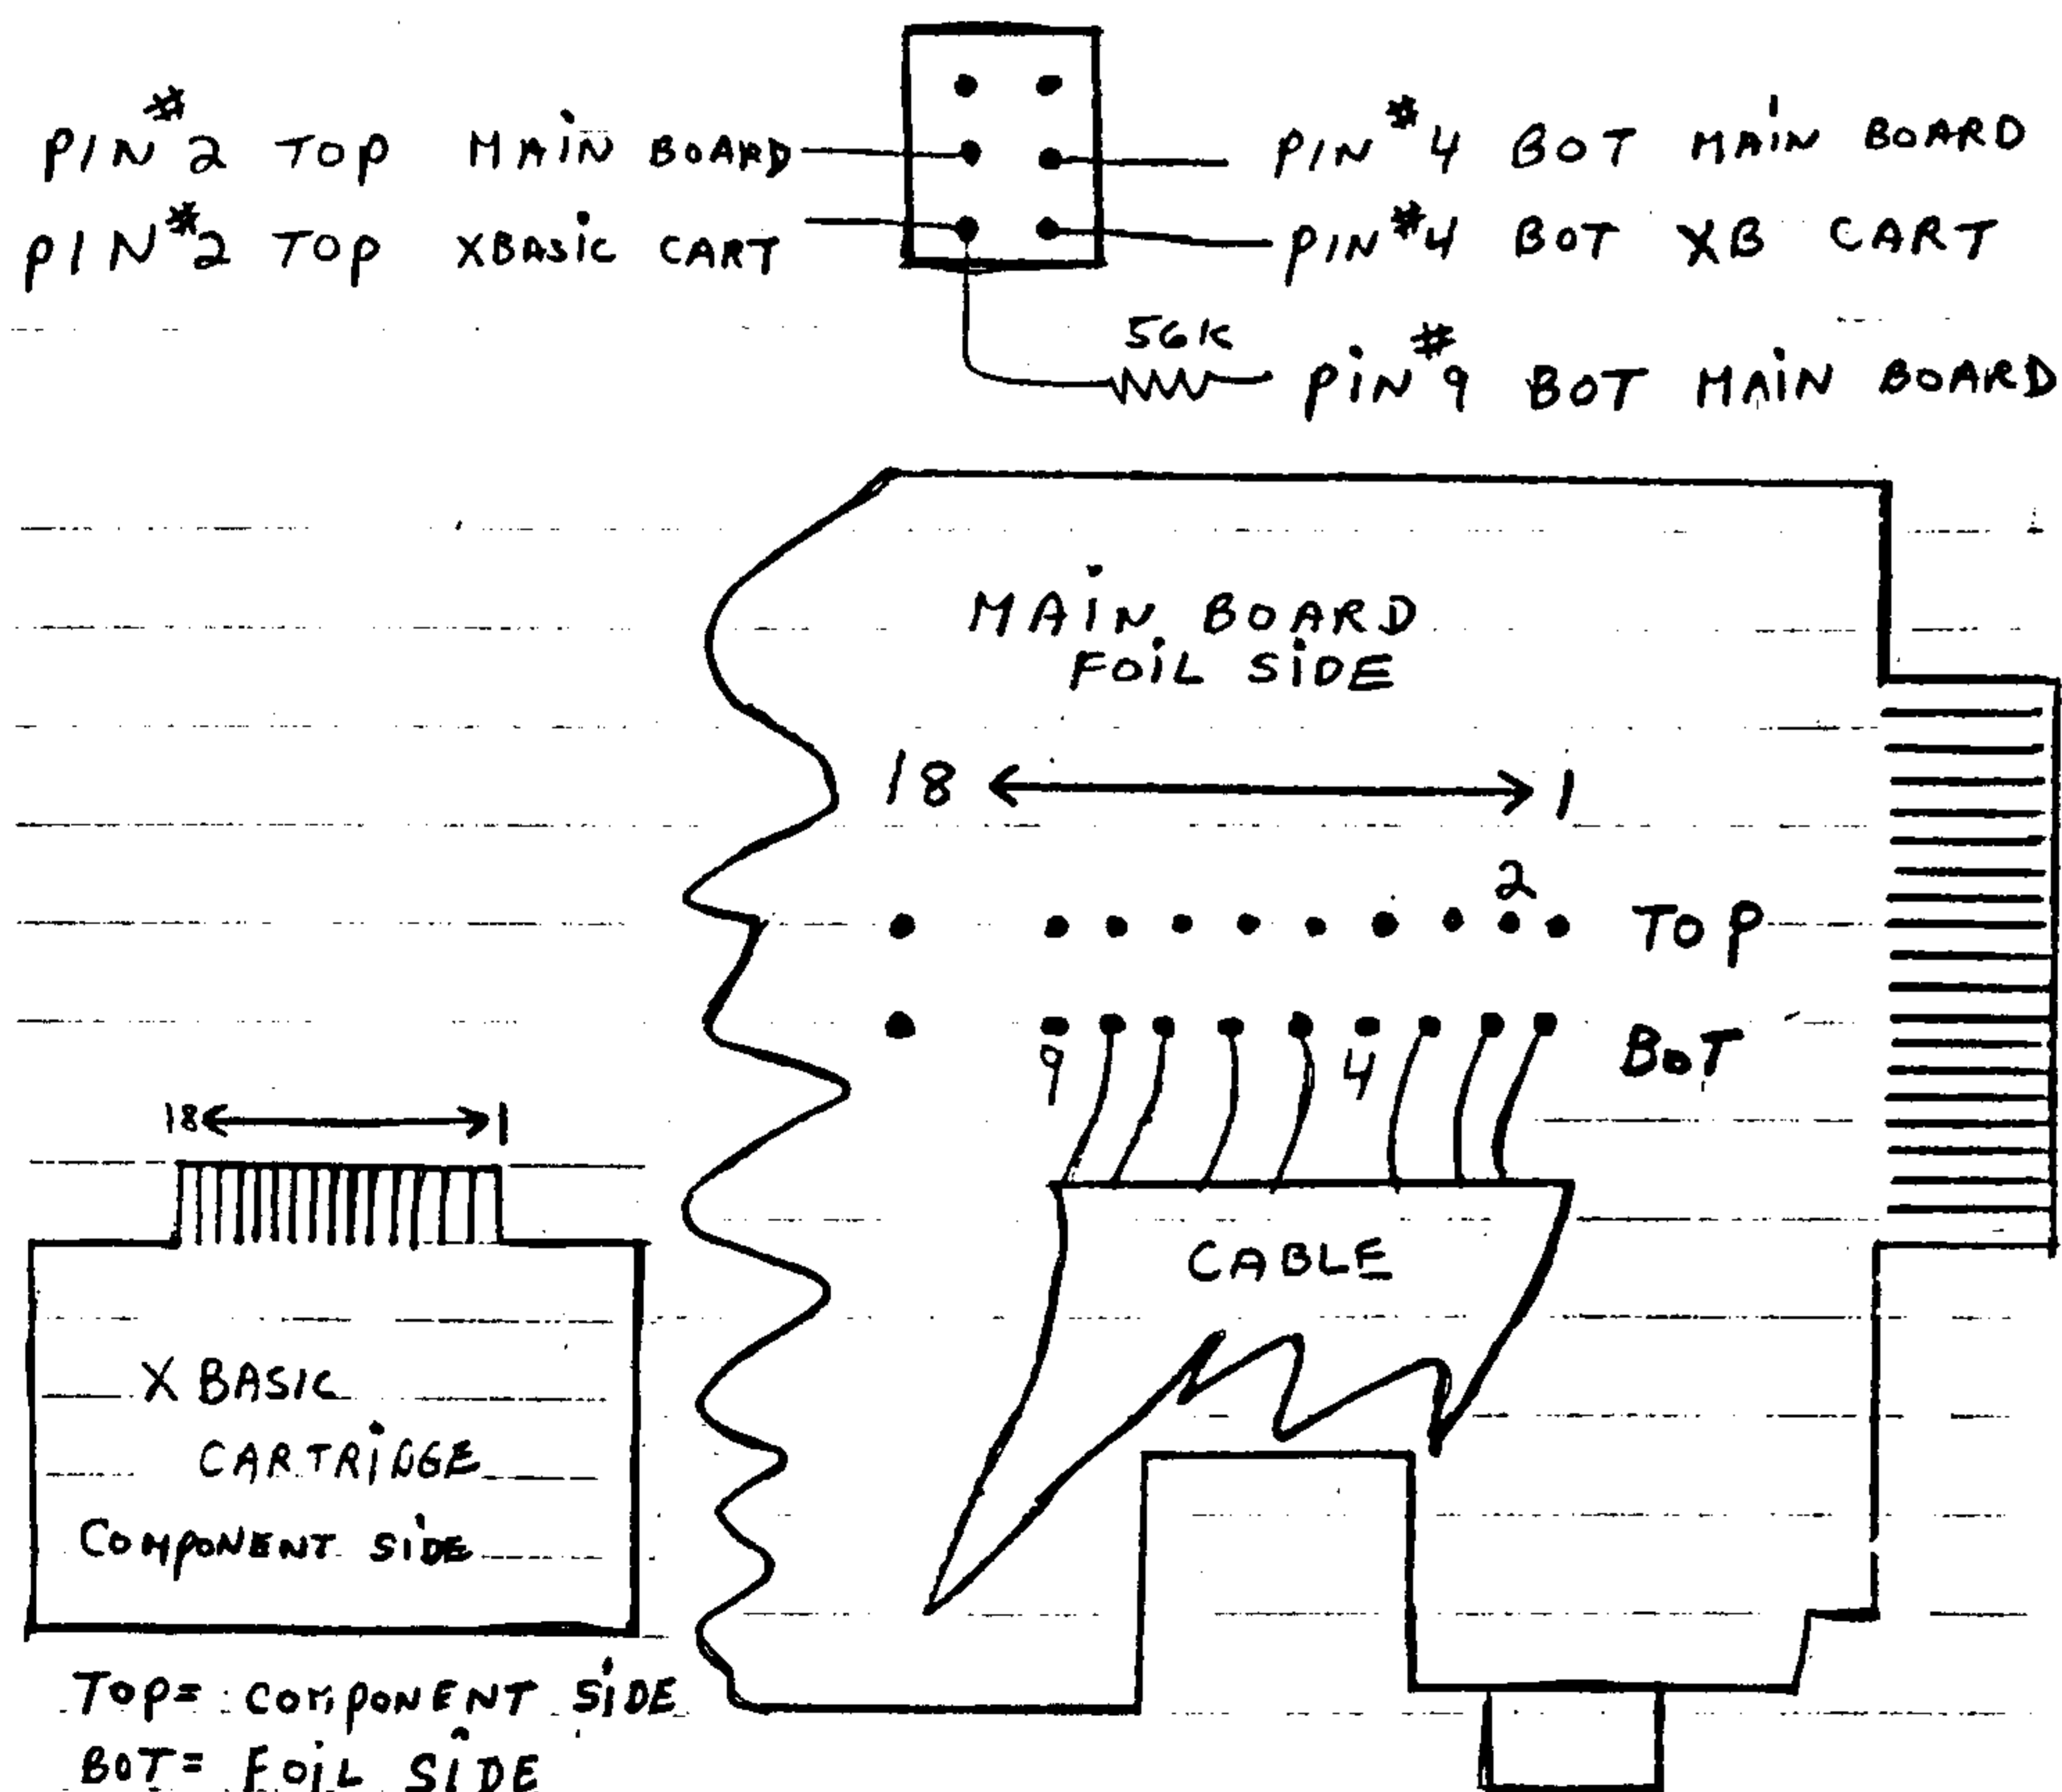 PIN #2 TOP MAIN BOARD
PIN #4 BOT MAIN BOARD
PIN #2 TOP XBASIC CART
PIN #4 BOT XB CART
56K
PIN #9 BOT MAIN BOARD
MAIN BOARD
FOIL SIDE
18 1
2
TOP
9 4
BOT
18 1
CABLE
X BASIC
CARTRIDGE
COMPONENT SIDE
TOP= COMPONENT SIDE
BOT= FOIL SIDE